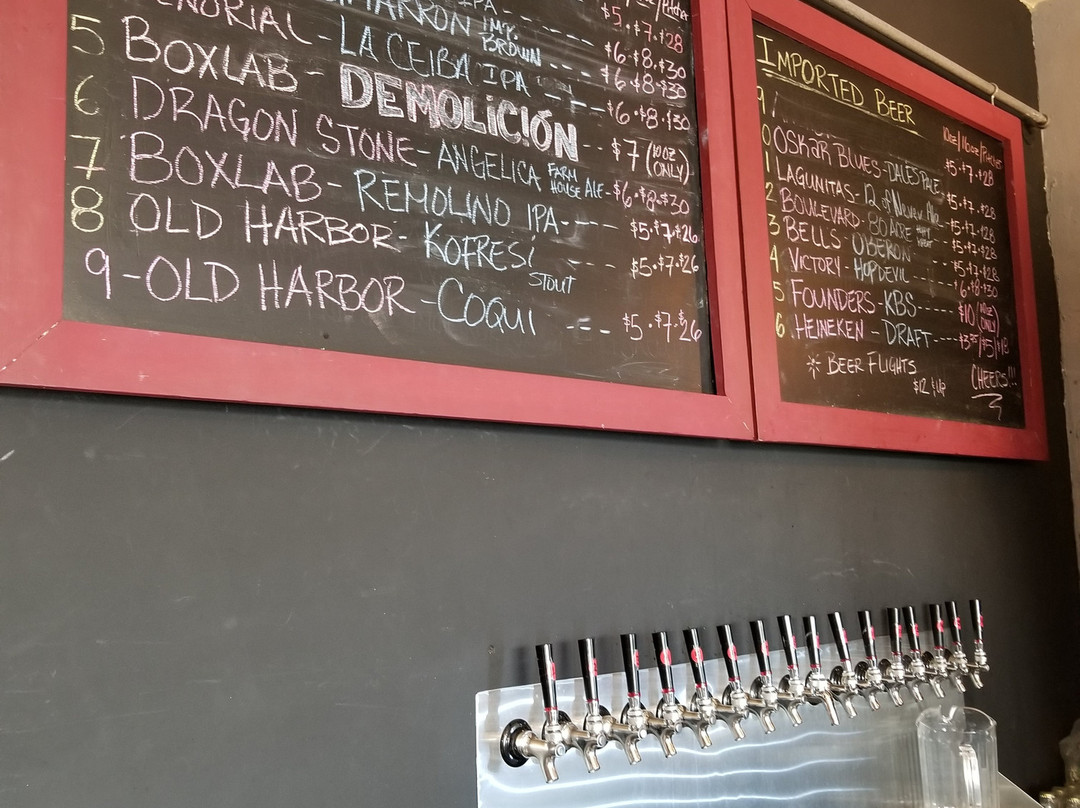 IPA
$5 · $7 · $28
IMP. BROWN ---- $6 · $8 · $30
- LA CEIBA IPA ---- $6 · $8 · $30
5 BOXLAB - DEMOLICIÓN -- $7 (10oz ONLY)
6 DRAGON STONE - ANGELICA FARM HOUSE ALE - $6 · $8 · $30
7 BOXLAB - REMOLINO IPA --- $5 · $7 · $26
8 OLD HARBOR - KOFRESÍ STOUT --- $5 · $7 · $26
9 - OLD HARBOR - COQUI --- $5 · $7 · $26
IMPORTED BEER
10oz/16oz/Pitcher
9
0 OSKAR BLUES - DALES PALE $5 · $7 · $28
1 LAGUNITAS - 12 of Never Ale $5 · $7 · $28
2 BOULEVARD - 80 ACRE $5 · $7 · $28
3 BELLS - OBERON --- $5 · $7 · $28
4 VICTORY - HOPDEVIL --- $6 · $8 · $30
5 FOUNDERS - KBS ---- $10 (10oz ONLY)
6 HEINEKEN - DRAFT ---- /$5/$18
BEER FLIGHTS
$12 & up
CHEERS!!!